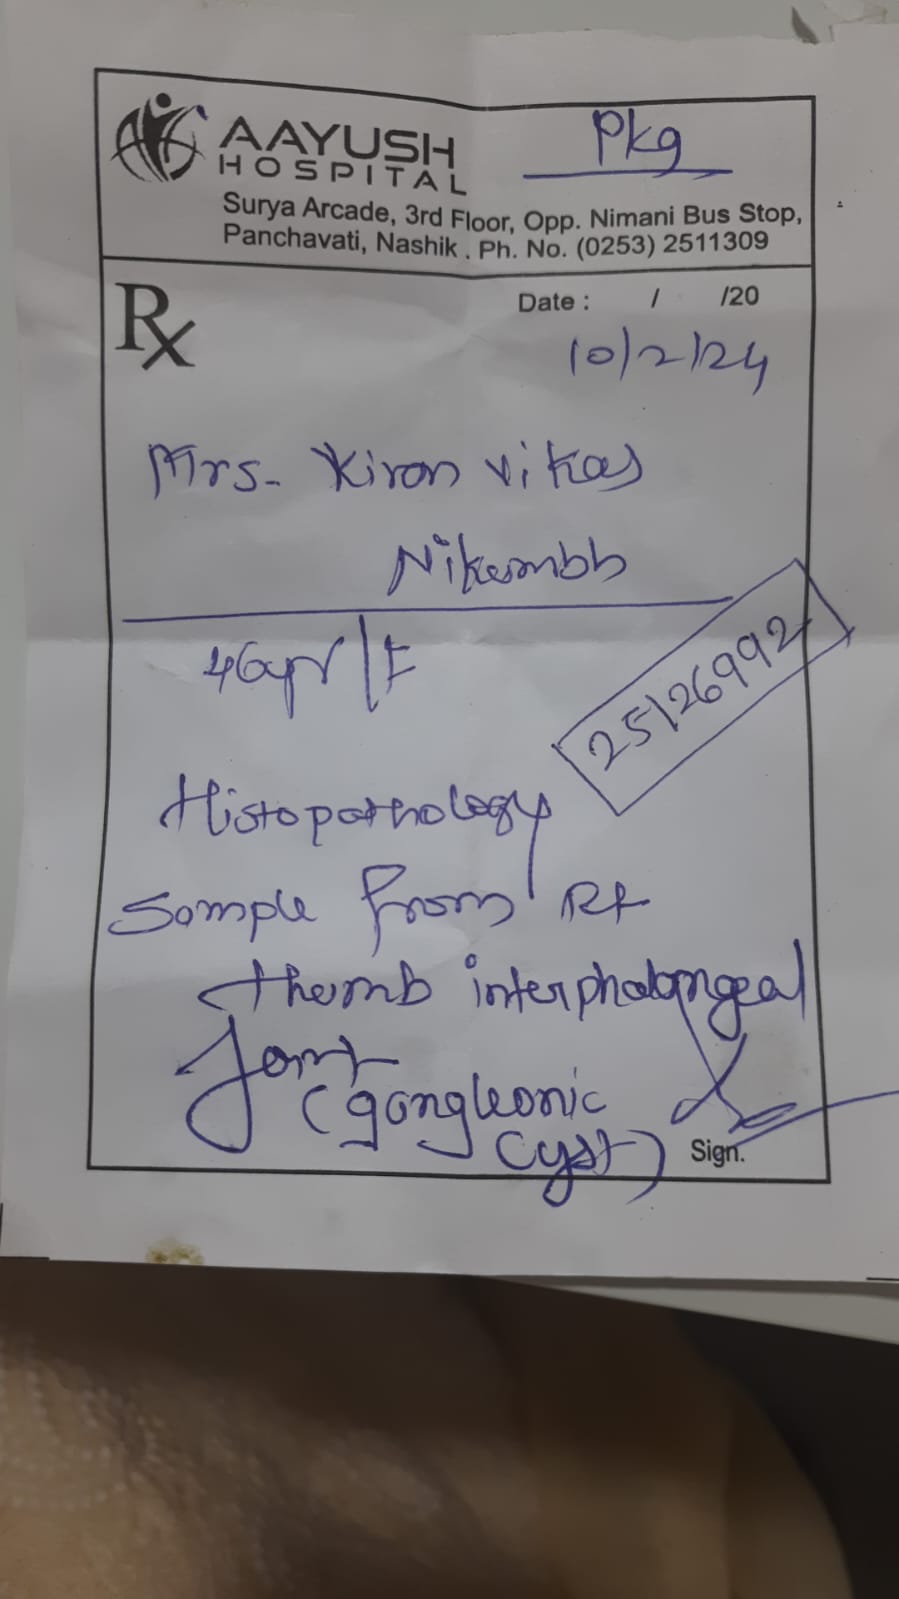 AAYUSH
HOSPITAL
Pkg
Surya Arcade, 3rd Floor, Opp. Nimani Bus Stop,
Panchavati, Nashik. Ph. No. (0253) 2511309
Rx
Date : / /20
10/2/24
Mrs. Kiran Vikas
Nikumbh
46yr/F
25126992
Histopathology
Sample from Rt
thumb interphalangeal
Joint
(gangleonic
Cyst)
Sign.